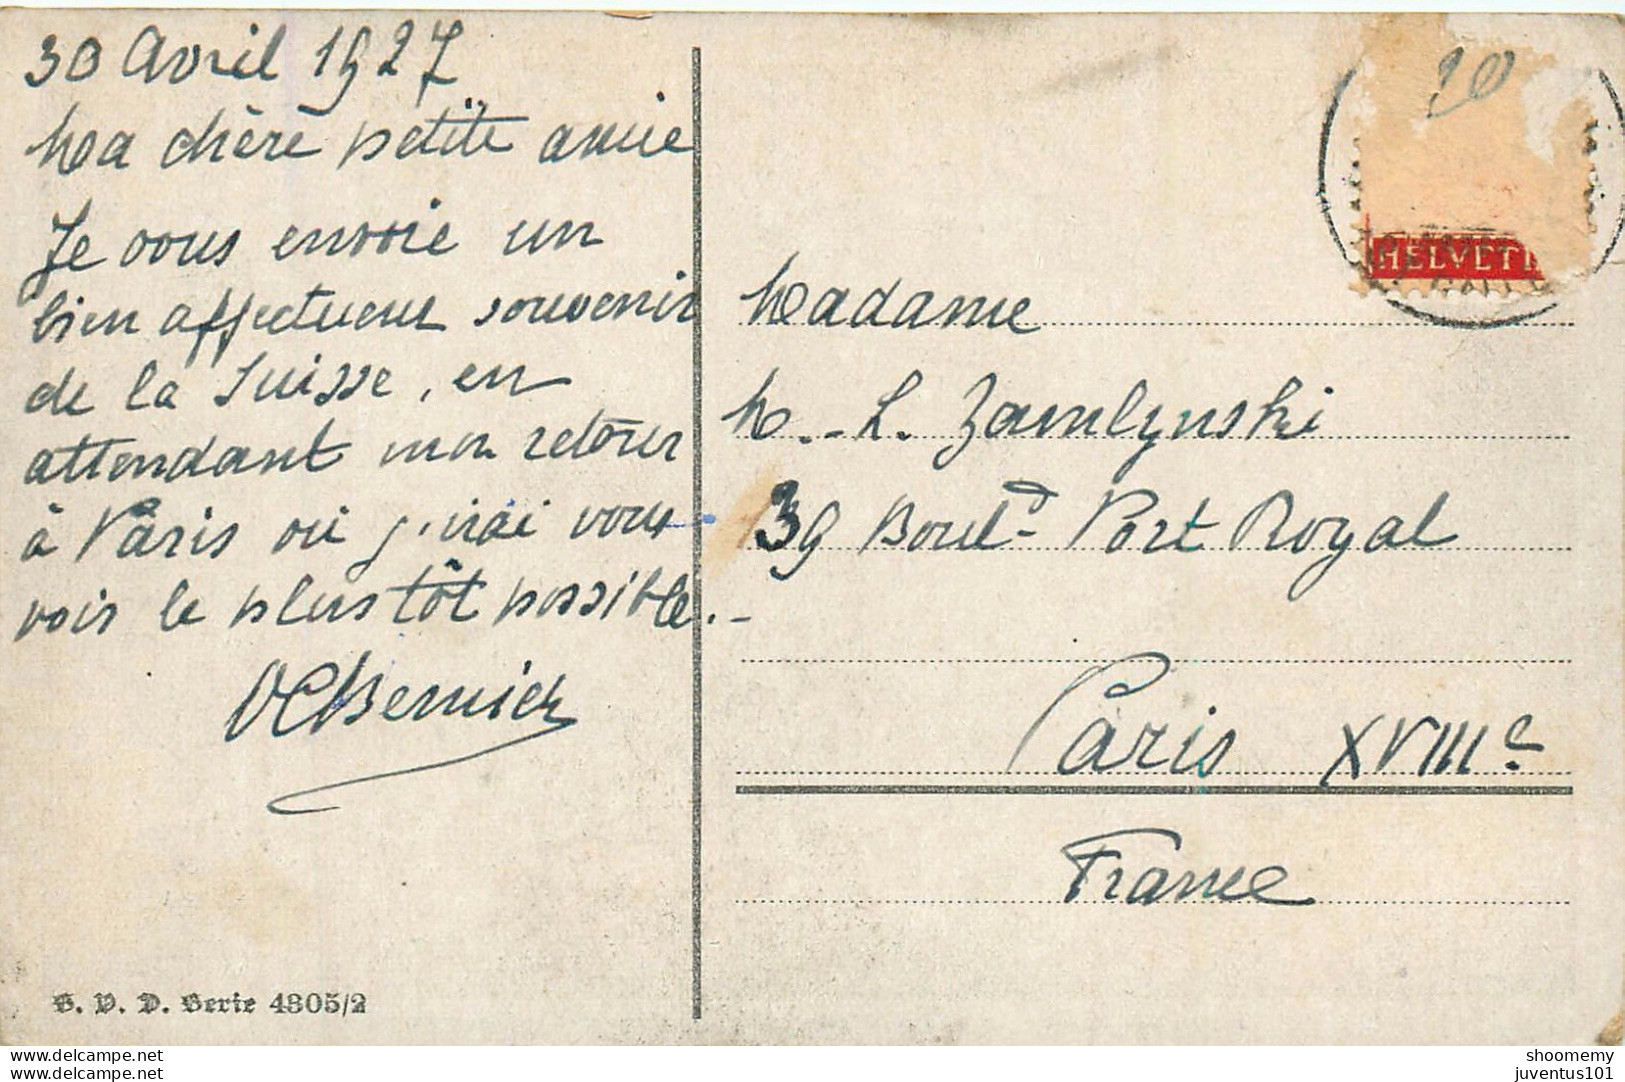 30 Avril 1927
Ma chère petite amie
Je vous envoie un
bien affectueux souvenir
de la Suisse, en
attendant mon retour
à Paris où j'irai vous
voir le plus tôt possible.-
20
HELVETI
Madame
M.-L. Zamlynski
39 Boul^d Port Royal
Paris XVIIIe
France
S. V. D. Serie 4305/2
www.delcampe.net
www.delcampe.net
shoomemy
juventus101